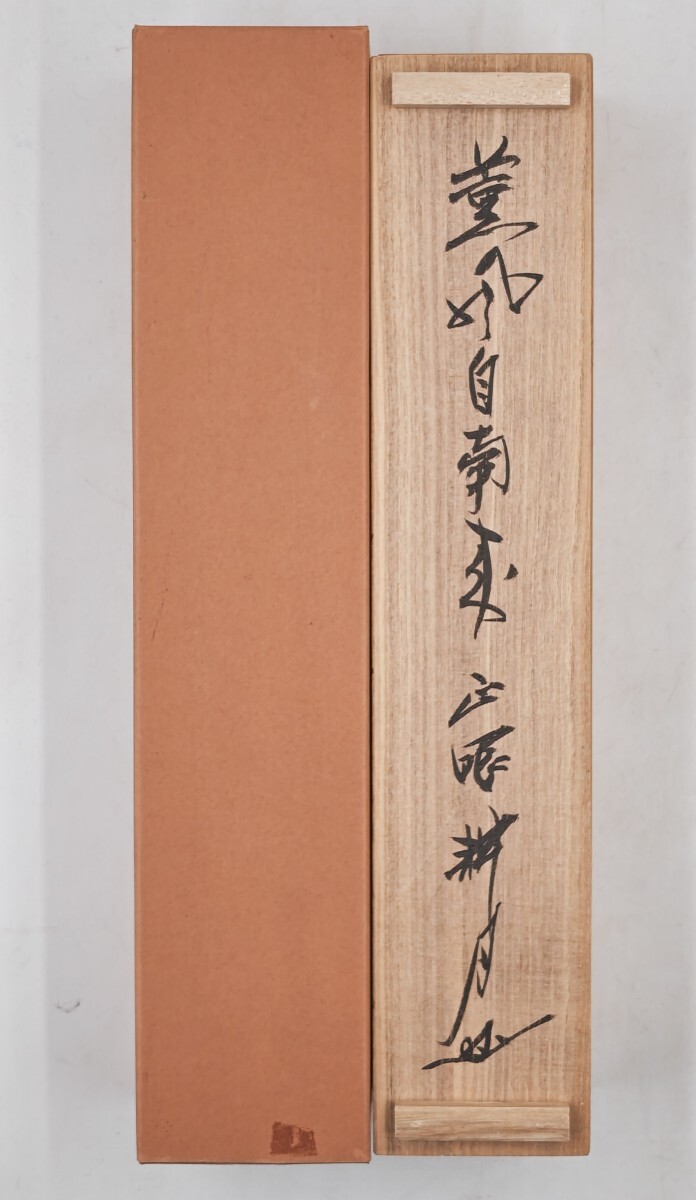 薫風自南来 正眼 耕月